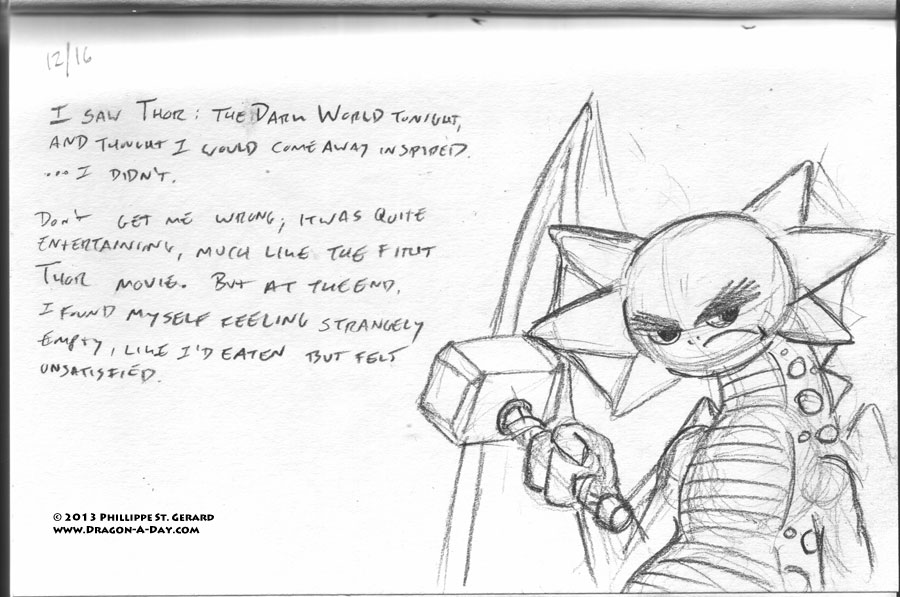 12/16
I SAW THOR: THE DARK WORLD TONIGHT,
AND THOUGHT I WOULD COME AWAY INSPIRED.
...I DIDN'T.
DON'T GET ME WRONG; IT WAS QUITE
ENTERTAINING, MUCH LIKE THE FIRST
THOR MOVIE. BUT AT THE END,
I FOUND MYSELF FEELING STRANGELY
EMPTY, LIKE I'D EATEN BUT FELT
UNSATISFIED.
© 2013 PHILLIPPE ST. GERARD
WWW.DRAGON-A-DAY.COM